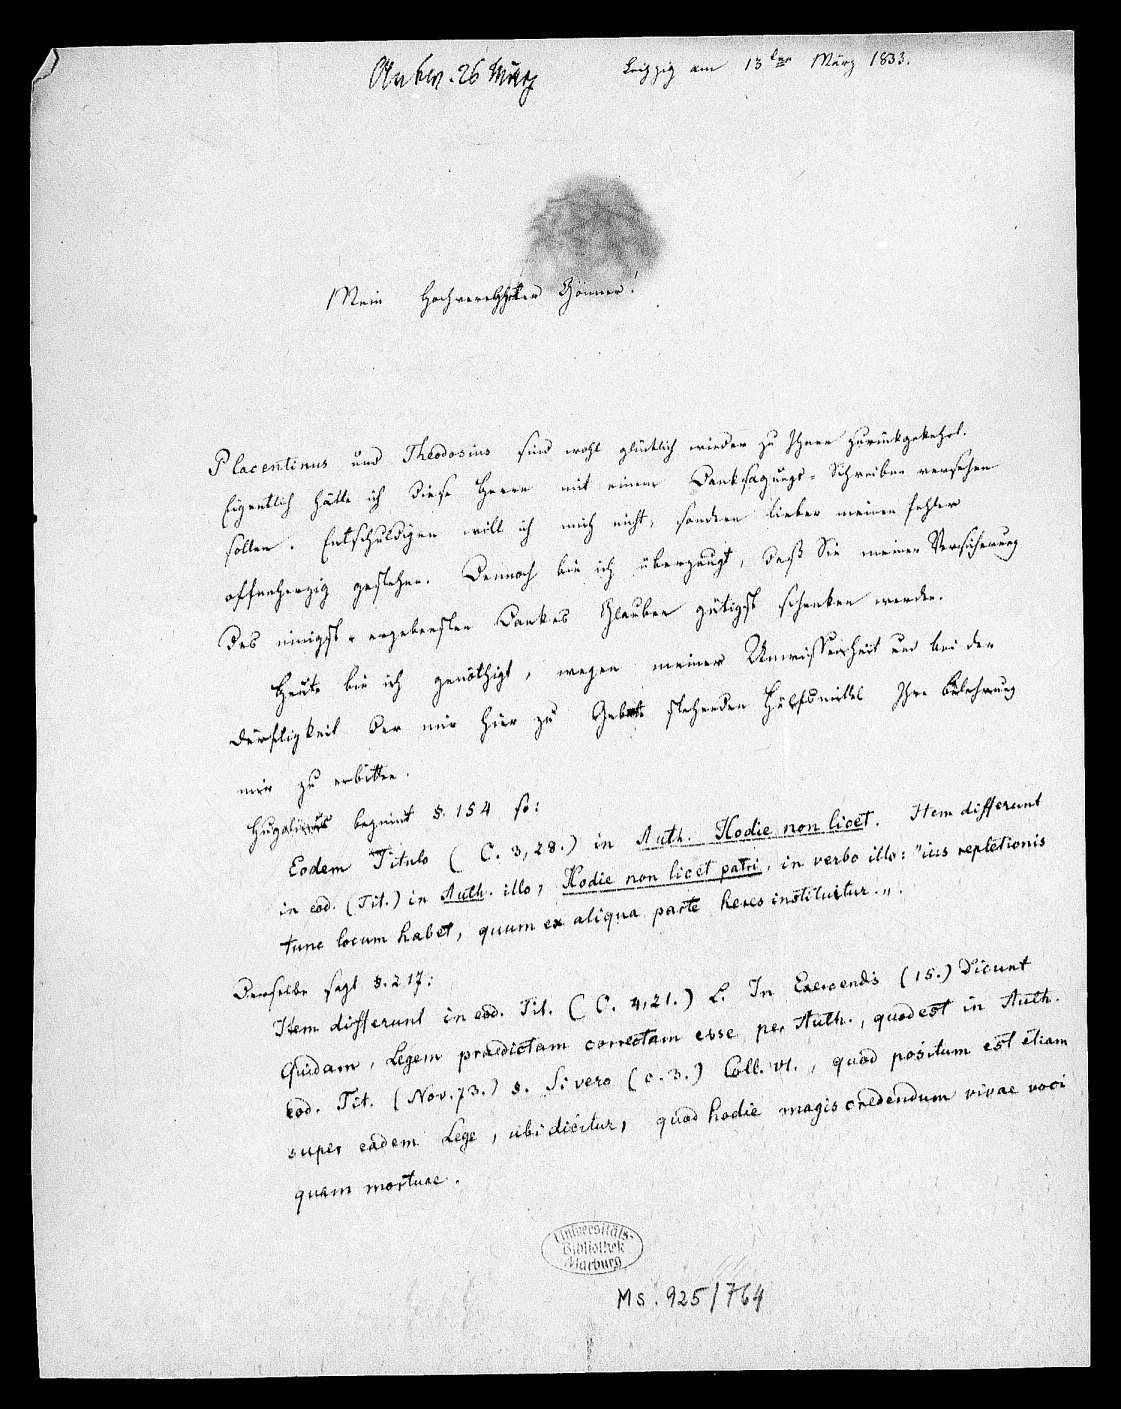 Antw. 26 März
Leipzig am 13ten März 1833.
Mein Hochverehrtester Gönner!
Placentinus und Theodosius sind wohl glücklich wieder zu Ihnen zurückgekehrt.
Eigentlich hätte ich diese Herren mit einem Danksagungs-Schreiben versehen
sollen. Entschuldigen will ich mich nicht, sondern lieber meinen Fehler
offenherzig gestehen. Dennoch bin ich überzeugt, daß Sie meiner Versicherung
des innigst-ergebensten Dankes Glauben gütigst schenken werden.
Heute bin ich genöthigt, wegen meiner Unwissenheit und bei der
Dürftigkeit der mir hier zu Gebote stehenden Hülfsmittel Ihre Belehrung
mir zu erbitten.
Hugolinus beginnt §. 154 so:
Eodem Titulo (C. 3,28.) in Auth. Hodie non licet. Item differunt
in eod. (Tit.) in Auth. illo, Hodie non licet patri, in verbo illo: "ius repletionis
tunc locum habet, quum ex aliqua parte heres instituitur.".
Derselbe sagt §. 217:
Item differunt in eod. Tit. (C. 4,21.) L. In Exercendis (15.) Dicunt
Quidam, Legem praedictam correctam esse per Auth., quod est in Auth.
eod. Tit. (Nov. 73.) §. Si vero (c. 3.) Coll. VI., quod positum est etiam
super eadem Lege, ubi dicitur, quod hodie magis credendum vivae voci
quam mortuae.
Universitäts-
Bibliothek
Marburg
Ms. 925/764